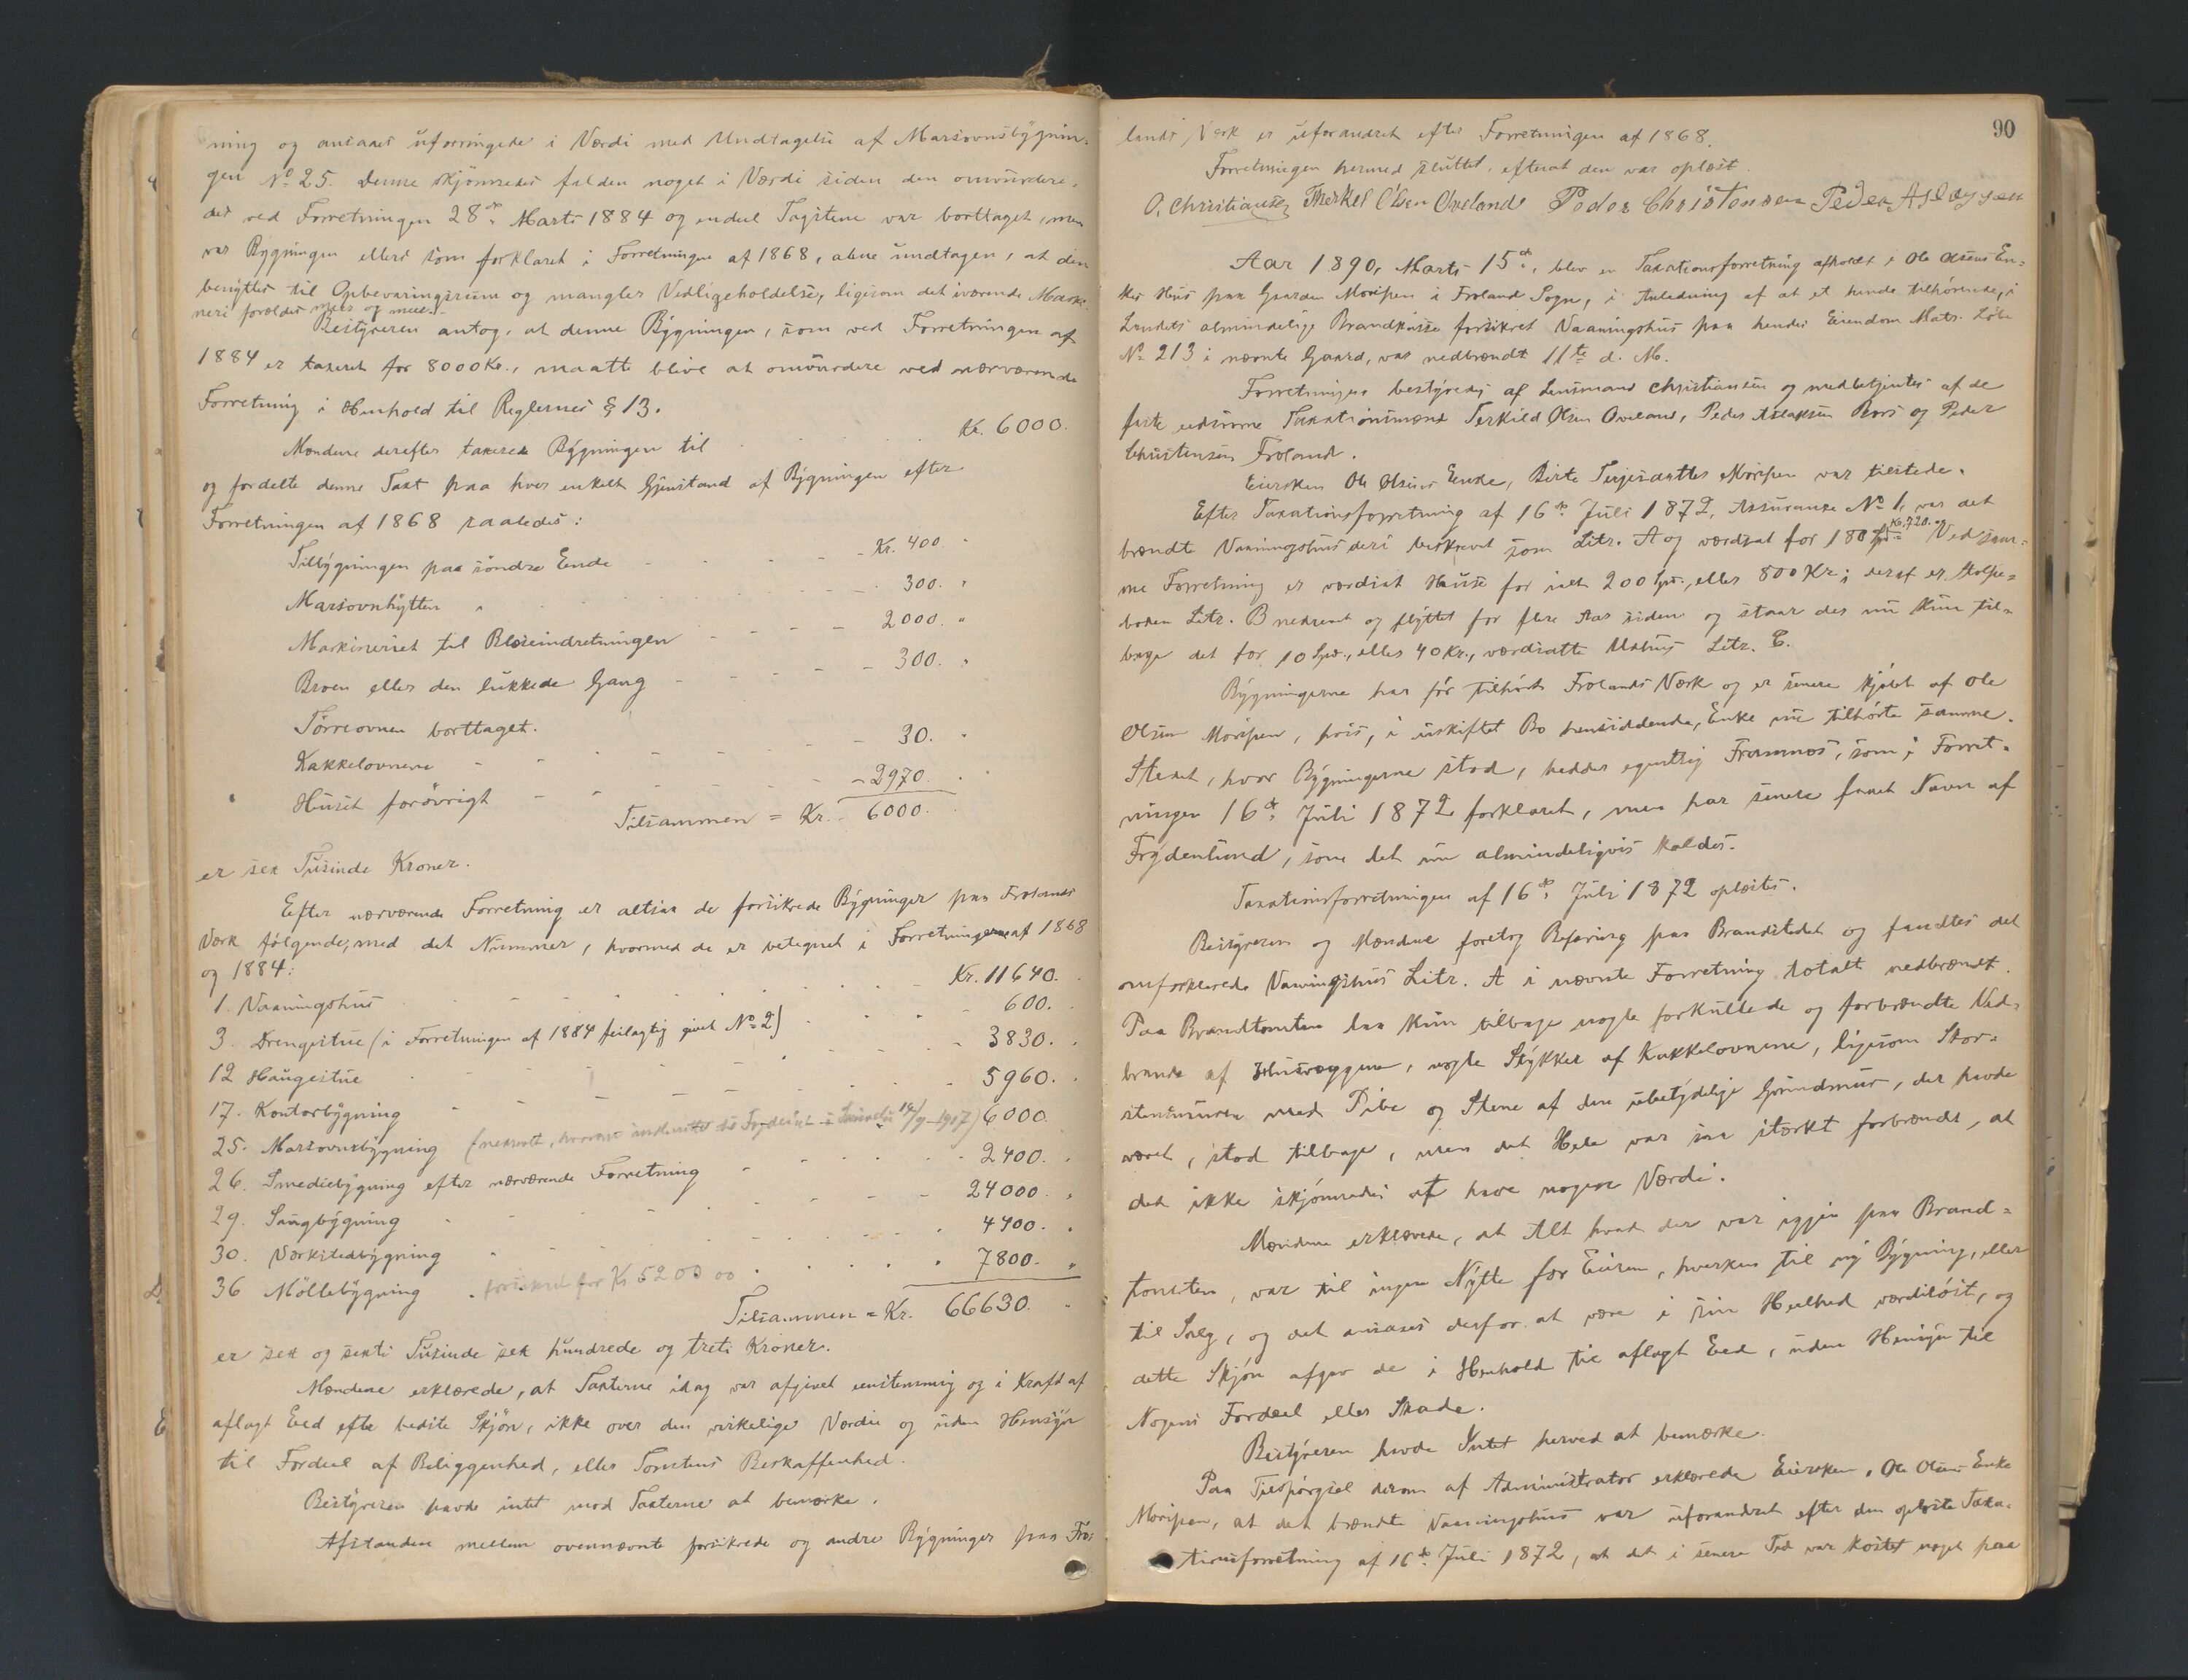 ning og ansaaes uforringede i Værdi med Undtagelse af Marsovnsbygnin-
gen No 25. Denne skjönnedes falden noget i Værdi siden den omvurdere-
des ved Forretningen 28de Marts 1884 og endeel Tagstene var borttaget, men
var Bygningen ellers som forklaret i Forretningen af 1868, alene undtagen, at den
benyttes til Opbevaringsrum og mangler Vedligeholdelse, ligesom det iværende Maski-
neri forældes meer og meer.
Bestyreren antog, at denne Bygningen, som ved Forretningen af
1884 er taxeret for 8000 Kr., maatte blive at omvurdere ved nærværende
Forretning i Henhold til Reglernes § 13.
Mændene derefter taxerede Bygningen til Kr. 6000.
og fordelte denne Taxt paa hver enkelt Gjenstand af Bygningen efter
Forretningen af 1868 saaledes:
Tilbygningen paa söndre Ende - - - Kr. 400. "
Marsovnhytten " - - - 300. "
Maskineriet til Blæseindretningen - - - 2000. "
Broen eller den lukkede Gang - - - 300. "
Törreovnen borttaget.
Kakkelovnene - - - 30. "
Huset forövrigt - - - 2970. "
Tilsammen = Kr. 6000.
er sex Tusinde Kroner.
Efter nærværende Forretning er altsaa de forsikrede Bygninger paa Frolands
Værk følgende, med det Nummer, hvormed de er betegnet i Forretningerne af 1868
og 1884:
1. Vaaningshus - - - Kr. 11640.
3. Drengestue (i Forretningen af 1884 feilagtig givet No 2) - - - 600.
12 Haugestue - - - 3830.
17. Kontorbygning - - - 5960.
25. Marsovnsbygning ( 1907) 6000.
26. Smediebygning efter nærværende Forretning - - - 2400.
29. Saugbygning - - - 24000. "
30. Værkstedbygning - - - 4400. "
36 Möllebygning forsikret for Kr 5200 00 7800. "
Tilsammen = Kr. 66630.
er sex og sexti Tusinde sex hundrede og treti Kroner.
Mændene erklærede, at Taxterne idag var afgivet eenstemmig og i Kraft af
aflagt Eed efter bedste Skjön, ikke over den virkelige Værdie og uden Hensyn
til Fordeel af Beliggenhed, eller Tomtens Beskaffenhed.
Bestyreren havde intet mod Taxterne at bemærke.
Afstanden mellem ovennævnte forsikrede og andre Bygninger paa Fro-
90
lands Værk er uforandret efter Forretningen af 1868.
Forretningen hermed sluttet, efterat den var oplæst.
O. Christiansen Therkel Olsen Oveland Peder Christensen Peder Aslagsen
Aar 1890, Marts 15de, blev en Taxationsforretning afholdt i Ole Olsens En-
kes Hus paa Gaarden Moripen i Froland Sogn, i Anledning af at et hende tilhörende, i
Landets almindelige Brandkasse forsikret Vaaningshus paa hendes Eiendom Matr. Löbe
No 213 i nævnte Gaard, var nedbrændt 11te d. M.
Forretningen bestyredes af Lensmand Christiansen og medbetjentes af de
faste edsvorne Taxationsmænd Terkild Olsen Oveland, Peder Aslaksen Bors og Peder
Christensen Froland.
Eiersken Ole Olsens Enke, Birte Terjesdatter Moripen var tilstede.
Efter Taxationsforretning af 16de Juli 1872, Assurance No 1, var det
brændte Vaaningshus deri beskrevet som Litr. A og værdsat for 180 Spd. Kr. 720. Ved sam-
me Forretning er værdsat Huse for ialt 200 Spd., eller 800 Kr; deraf er Stolpe-
boden Litr. B nedrevet og flyttet for flere Aar siden og staar der nu kun til-
bage det for 10 Spd., eller 40 Kr., værdsatte Uthus Litr. C.
Bygningerne har för tilhört Frolands Værk og er senere kjöbt af Ole
Olsen Moripen, hvis, i uskiftet Bo hensiddende, Enke nu tilhörte samme.
Stedet, hvor Bygningerne stod, heddes egentlig Frommos, som i Forret-
ningen 16de Juli 1872 forklaret, men har senere faaet Navn af
Frydenlund, som det nu almindeligvis kaldes.
Taxationsforretningen af 16de Juli 1872 oplæstes.
Bestyreren og Mændene foretog Befaring paa Brandstedet og fandtes det
omforklarede Vaaningshus Litr. A i nævnte Forretning totalt nedbrændt.
Paa Brandtomten laa kun tilbage nogle forkullede og forbrændte Ned-
brande af Husvæggene, nogle Stykker af Kakkelovnene, ligesom Skor-
stensmuren med Pibe og Stene af den ubetydelige Grundmur, der havde
været, stod tilbage, men det Hele var saa stærkt forbrændt, at
det ikke skjönnedes at have nogen Værdi.
Mændene erklærede, at Alt hvad der var igjen paa Brand-
tomten, var til ingen Nytte for Eieren, hverken til ny Bygning, eller
til Salg, og det ansaaes derfor at være i sin Heelhed værdilöst, og
dette Skjön afgav de i Henhold til aflagt Eed, uden Hensyn til
Nogens Fordeel eller Skade.
Bestyreren havde Intet herved at bemærke.
Paa Tilspörgsel derom af Administrator erklærede Eiersken, Ole Olsens Enke
Moripen, at det brændte Vaaningshus var uforandret efter den oplæste Taxa-
tionsforretning af 16de Juli 1872, at det i senere Tid var kostet noget paa